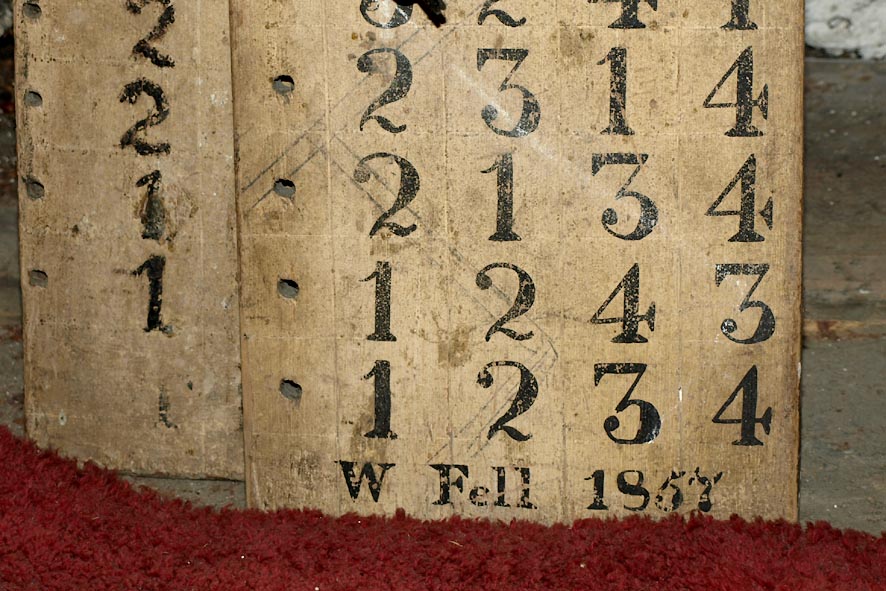 2
2
1
1
3 2 4 1
2 3 1 4
2 1 3 4
1 2 4 3
1 2 3 4
W Fell 1857